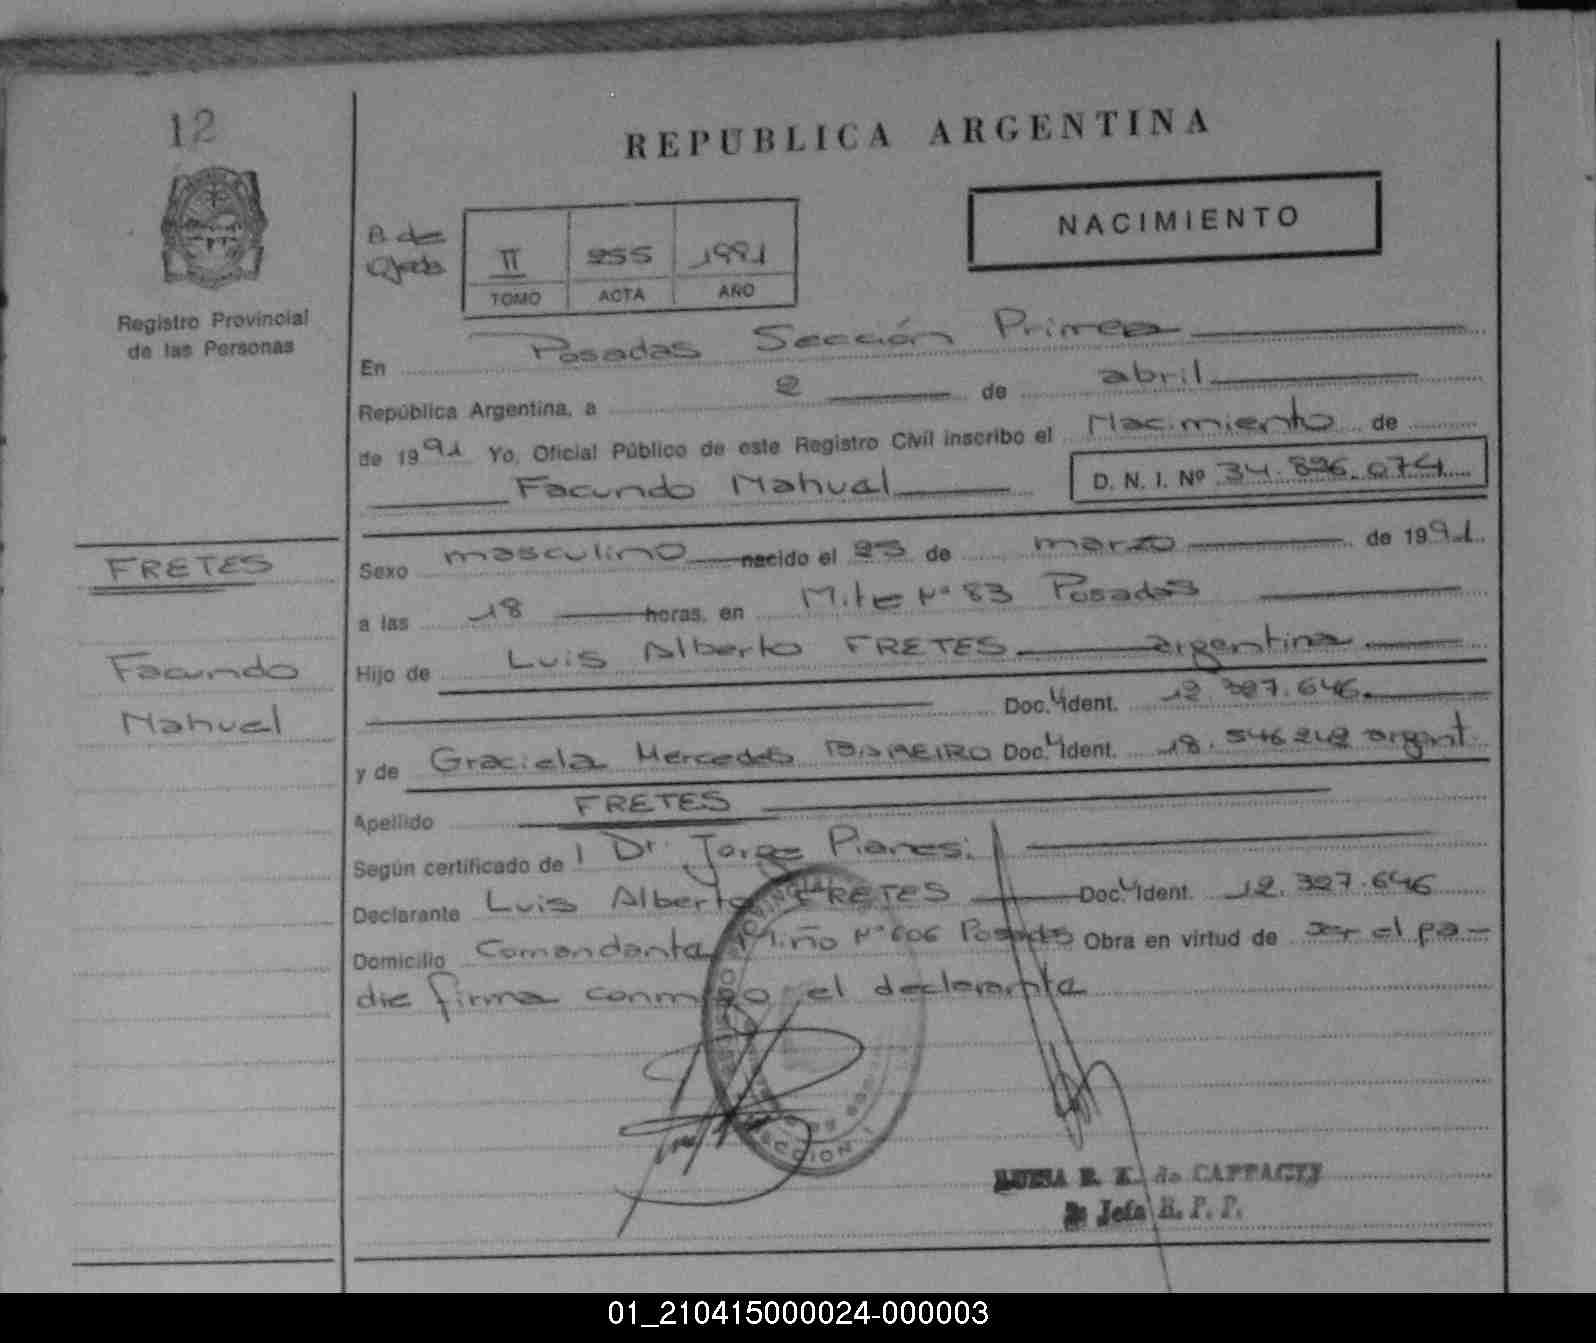 12
REPUBLICA ARGENTINA
NACIMIENTO
II 255 1991
TOMO ACTA AÑO
Registro Provincial
de las Personas
En Posadas Sección Primera
República Argentina, a 2 de abril
de 1991 Yo, Oficial Público de este Registro Civil inscribo el Nacimiento de
Facundo Mahuel D. N. I. Nº 34.896.074
FRETES
Facundo
Mahuel
Sexo masculino nacido el 23 de marzo de 1991
a las 18 horas, en Mitre Nº 83 Posadas
Hijo de Luis Alberto FRETES argentina
Doc. Ident. 12.327.646
y de Graciela Mercedes Doc. Ident. 18.546.242 argent.
Apellido FRETES
Según certificado de Dr. Jorge Pianesi
Declarante Luis Alberto FRETES Doc. Ident. 12.327.646
Domicilio Comandante Miño Nº 606 Posadas Obra en virtud de ser el pa-
dre firma conmigo el declarante
SECCION 1
Jefa R. P. P.
01_210415000024-000003